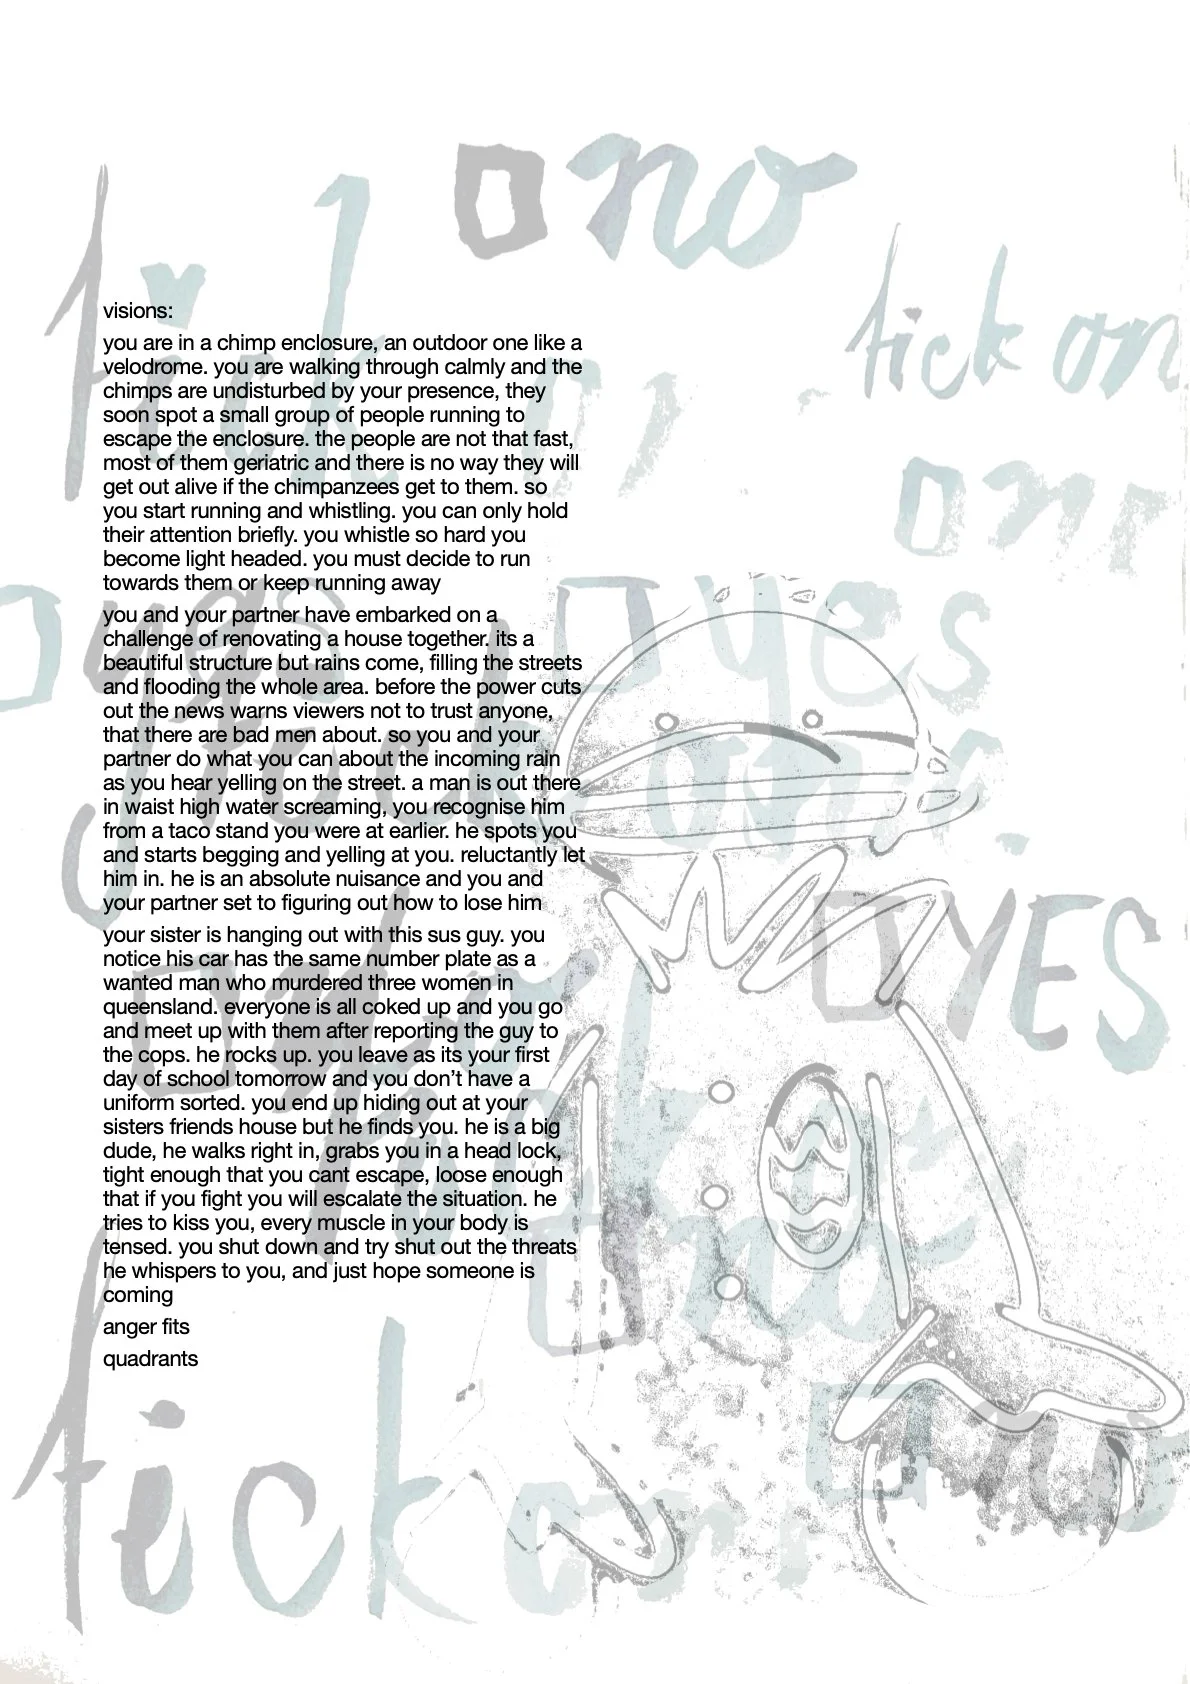 no
tick
tick on
visions:
you are in a chimp enclosure, an outdoor one like a
velodrome. you are walking through calmly and the
chimps are undisturbed by your presence, they
soon spot a small group of people running to
escape the enclosure. the people are not that fast,
most of them geriatric and there is no way they will
get out alive if the chimpanzees get to them. so
you start running and whistling. you can only hold
their attention briefly. you whistle so hard you
become light headed. you must decide to run
towards them or keep running away
yes
yes
you and your partner have embarked on a
challenge of renovating a house together. its a
beautiful structure but rains come, filling the streets
and flooding the whole area. before the power cuts
out the news warns viewers not to trust anyone,
that there are bad men about. so you and your
partner do what you can about the incoming rain
as you hear yelling on the street. a man is out there
in waist high water screaming, you recognise him
from a taco stand you were at earlier. he spots you
and starts begging and yelling at you. reluctantly let
him in. he is an absolute nuisance and you and
your partner set to figuring out how to lose him
YES
your sister is hanging out with this sus guy. you
notice his car has the same number plate as a
wanted man who murdered three women in
queensland. everyone is all coked up and you go
and meet up with them after reporting the guy to
the cops. he rocks up. you leave as its your first
day of school tomorrow and you don’t have a
uniform sorted. you end up hiding out at your
sisters friends house but he finds you. he is a big
dude, he walks right in, grabs you in a head lock,
tight enough that you cant escape, loose enough
that if you fight you will escalate the situation. he
tries to kiss you, every muscle in your body is
tensed. you shut down and try shut out the threats
he whispers to you, and just hope someone is
coming
no
anger fits
quadrants
no
tick on